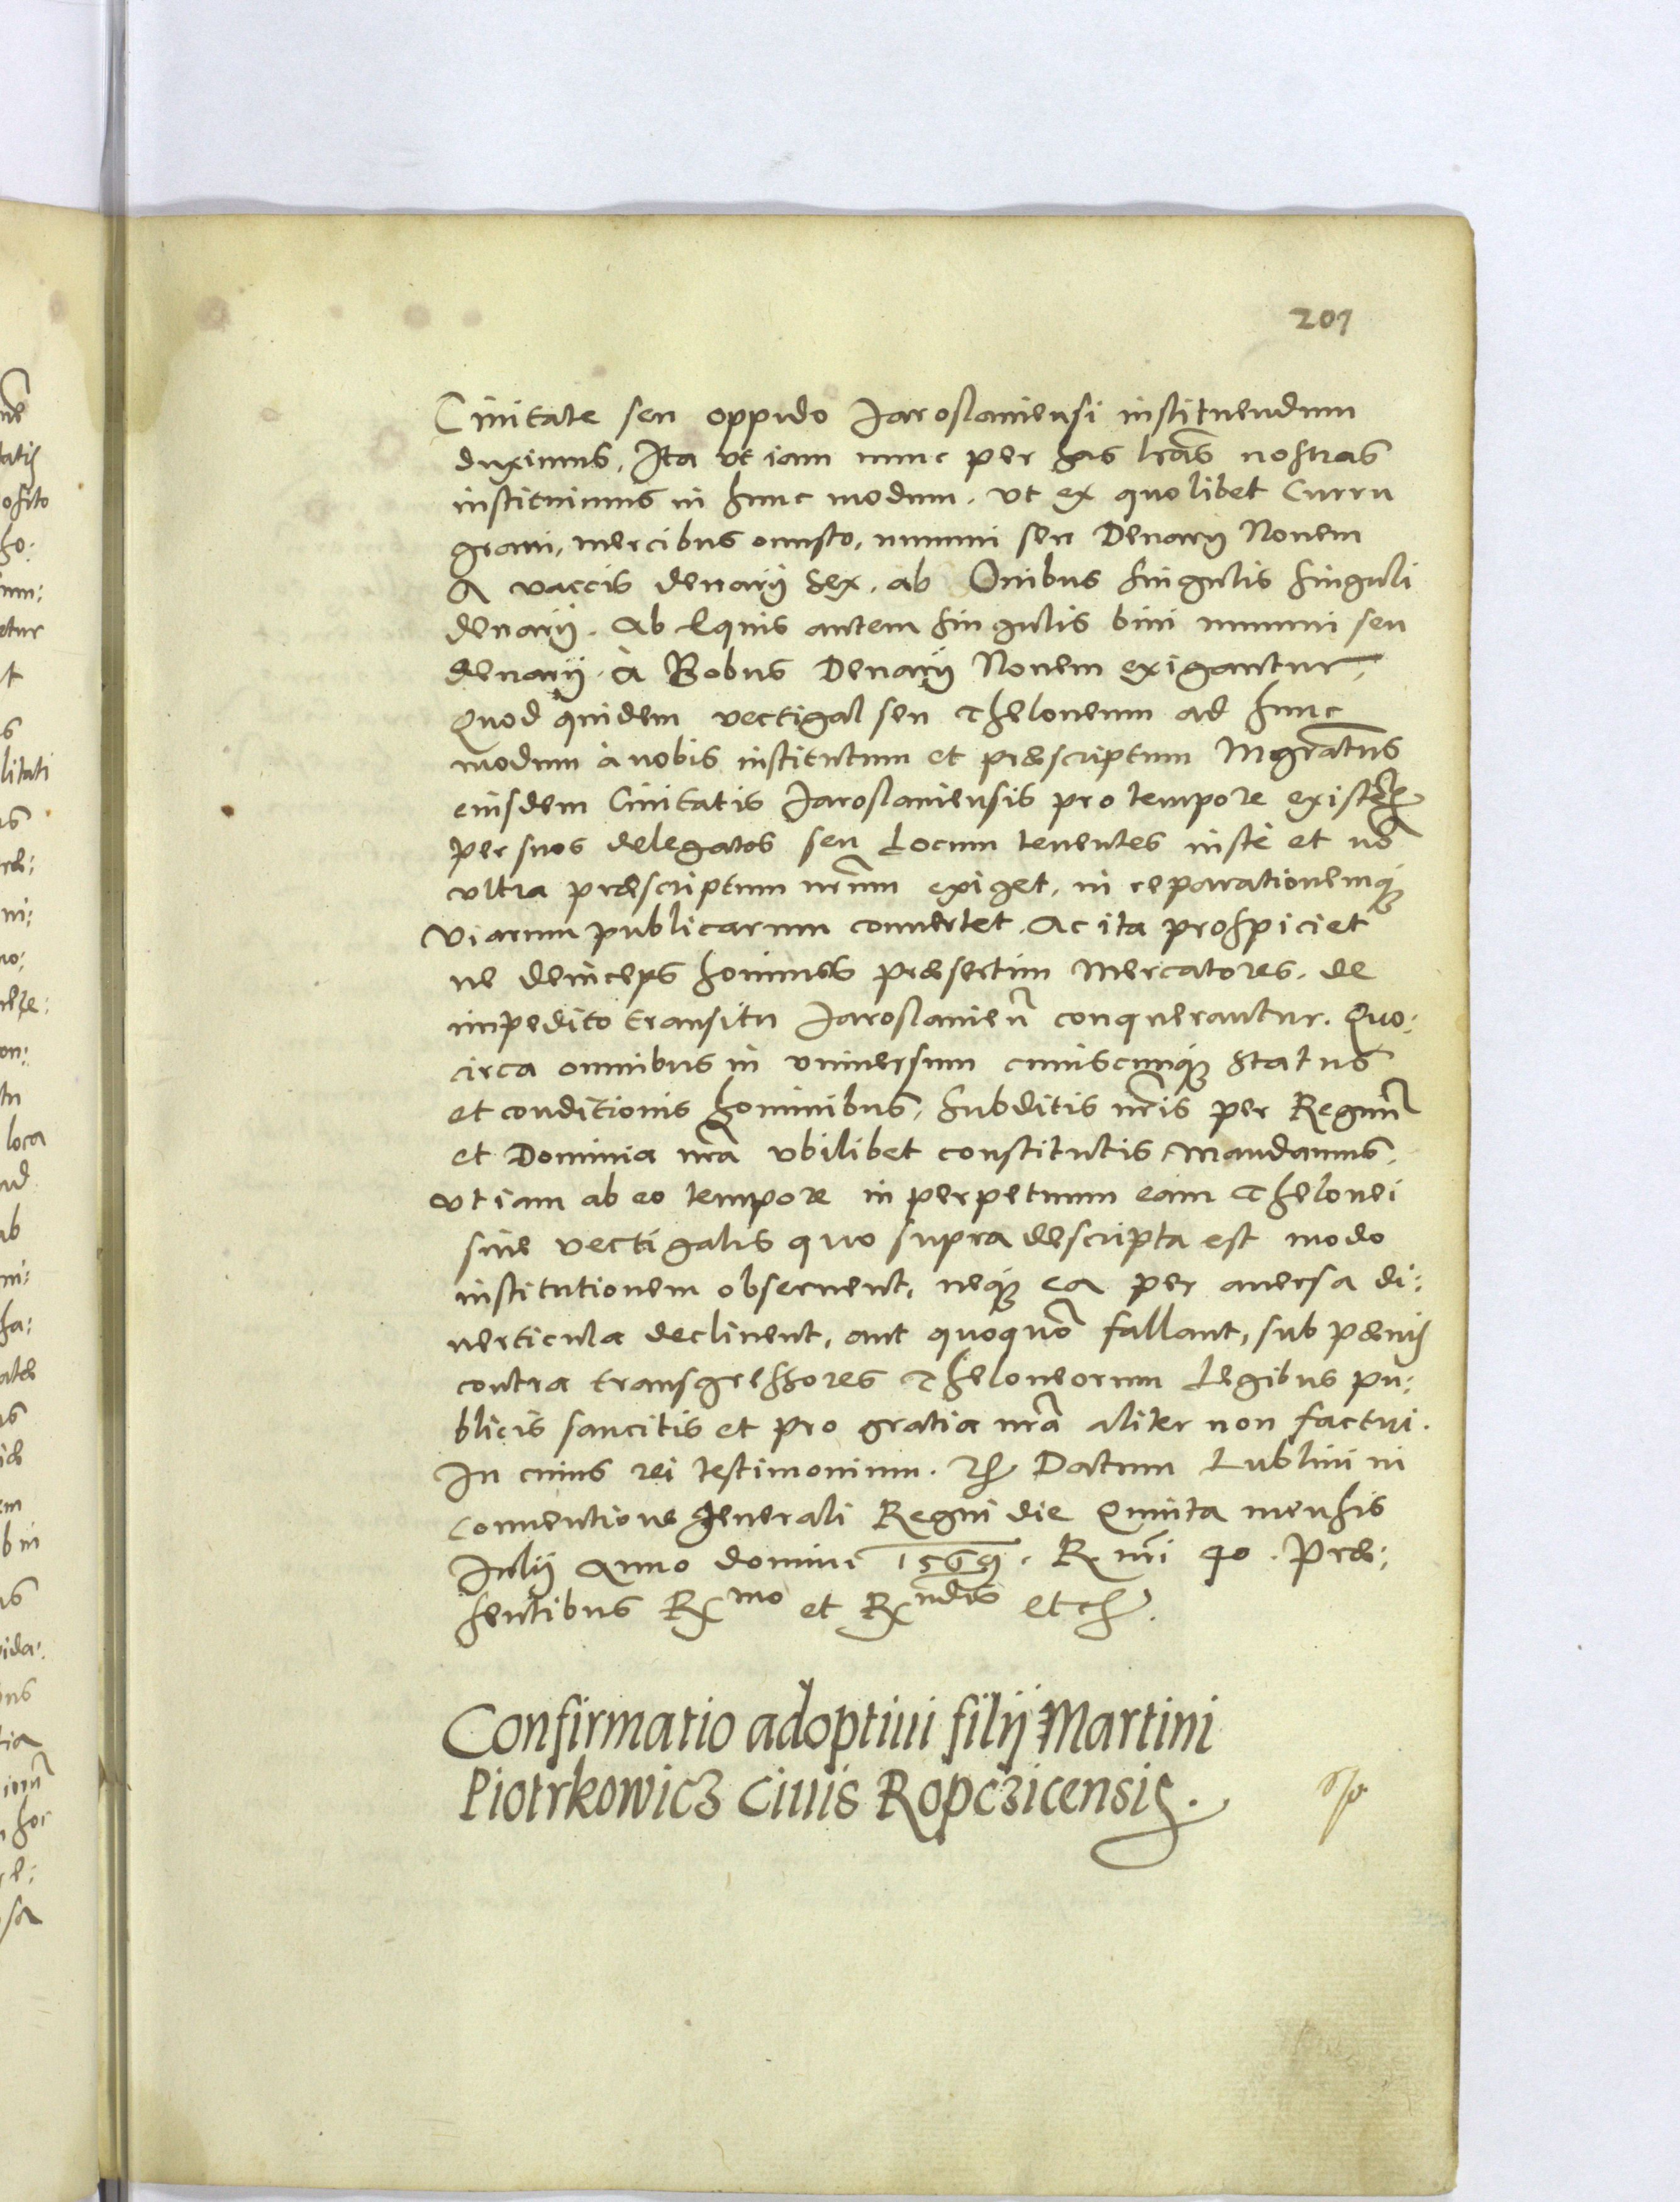 201
Ciuitate seu oppido Jaroslauiensi instituendum
duximus, Ita vt iam nunc per has lras nostras
instituimus in hunc modum. vt ex quolibet Curru
graui, mercibus onusto, nummi seu Denarij Nouem
A vaccis denarij Sex. ab Ouibus singulis singuli
denarij. Ab Equis autem singulis bini nummi seu
denarij. à Bobus Denarij Nouem exigantur,
Quod quidem vectigal seu Theloneum ad hunc
modum à nobis institutum et præscriptum Mgratus
eiusdem Ciuitatis Jaroslauiensis pro tempore existeñ
per suos delegatos seu Locum tenentes iuste et nõ
vltra præscriptum nrum exiget, in reparationemq₃
viarum publicarum conuertet. Ac ita prospiciet
ne deinceps homines præsertim Mercatores. de
impedito transitu Jaroslauien̄ conquerantur. Quo:
circa omnibus in vniuersum cuiuscunq₃ Status
et conditionis hominibus, Subditis nris per Regnũ
et Dominia nra vbilibet constitutis, Mandamus,
vt iam ab eo tempore in perpetuum eam Thelonei
siue vectigalis quo supra descripta est modo
institutionem obseruent, neq₃ ea per auersa di:
uerticula declinent, aut quoquõ fallant, sub pœnis
contra transgressores Theloneorum Legibus pu:
blicis sancitis et pro gratia nra aliter non factui.
In cuius rei testimonium. etc Datum Lublini in
Conuentione generali Regni die Quinta mensis
Iulij Anno domini 1569. R. nri 40. Præ:
sentibus Rmo et Rndis etc.
Confirmatio adoptiui filij Martini
Piotrkowicz Ciuis Ropczicensis.